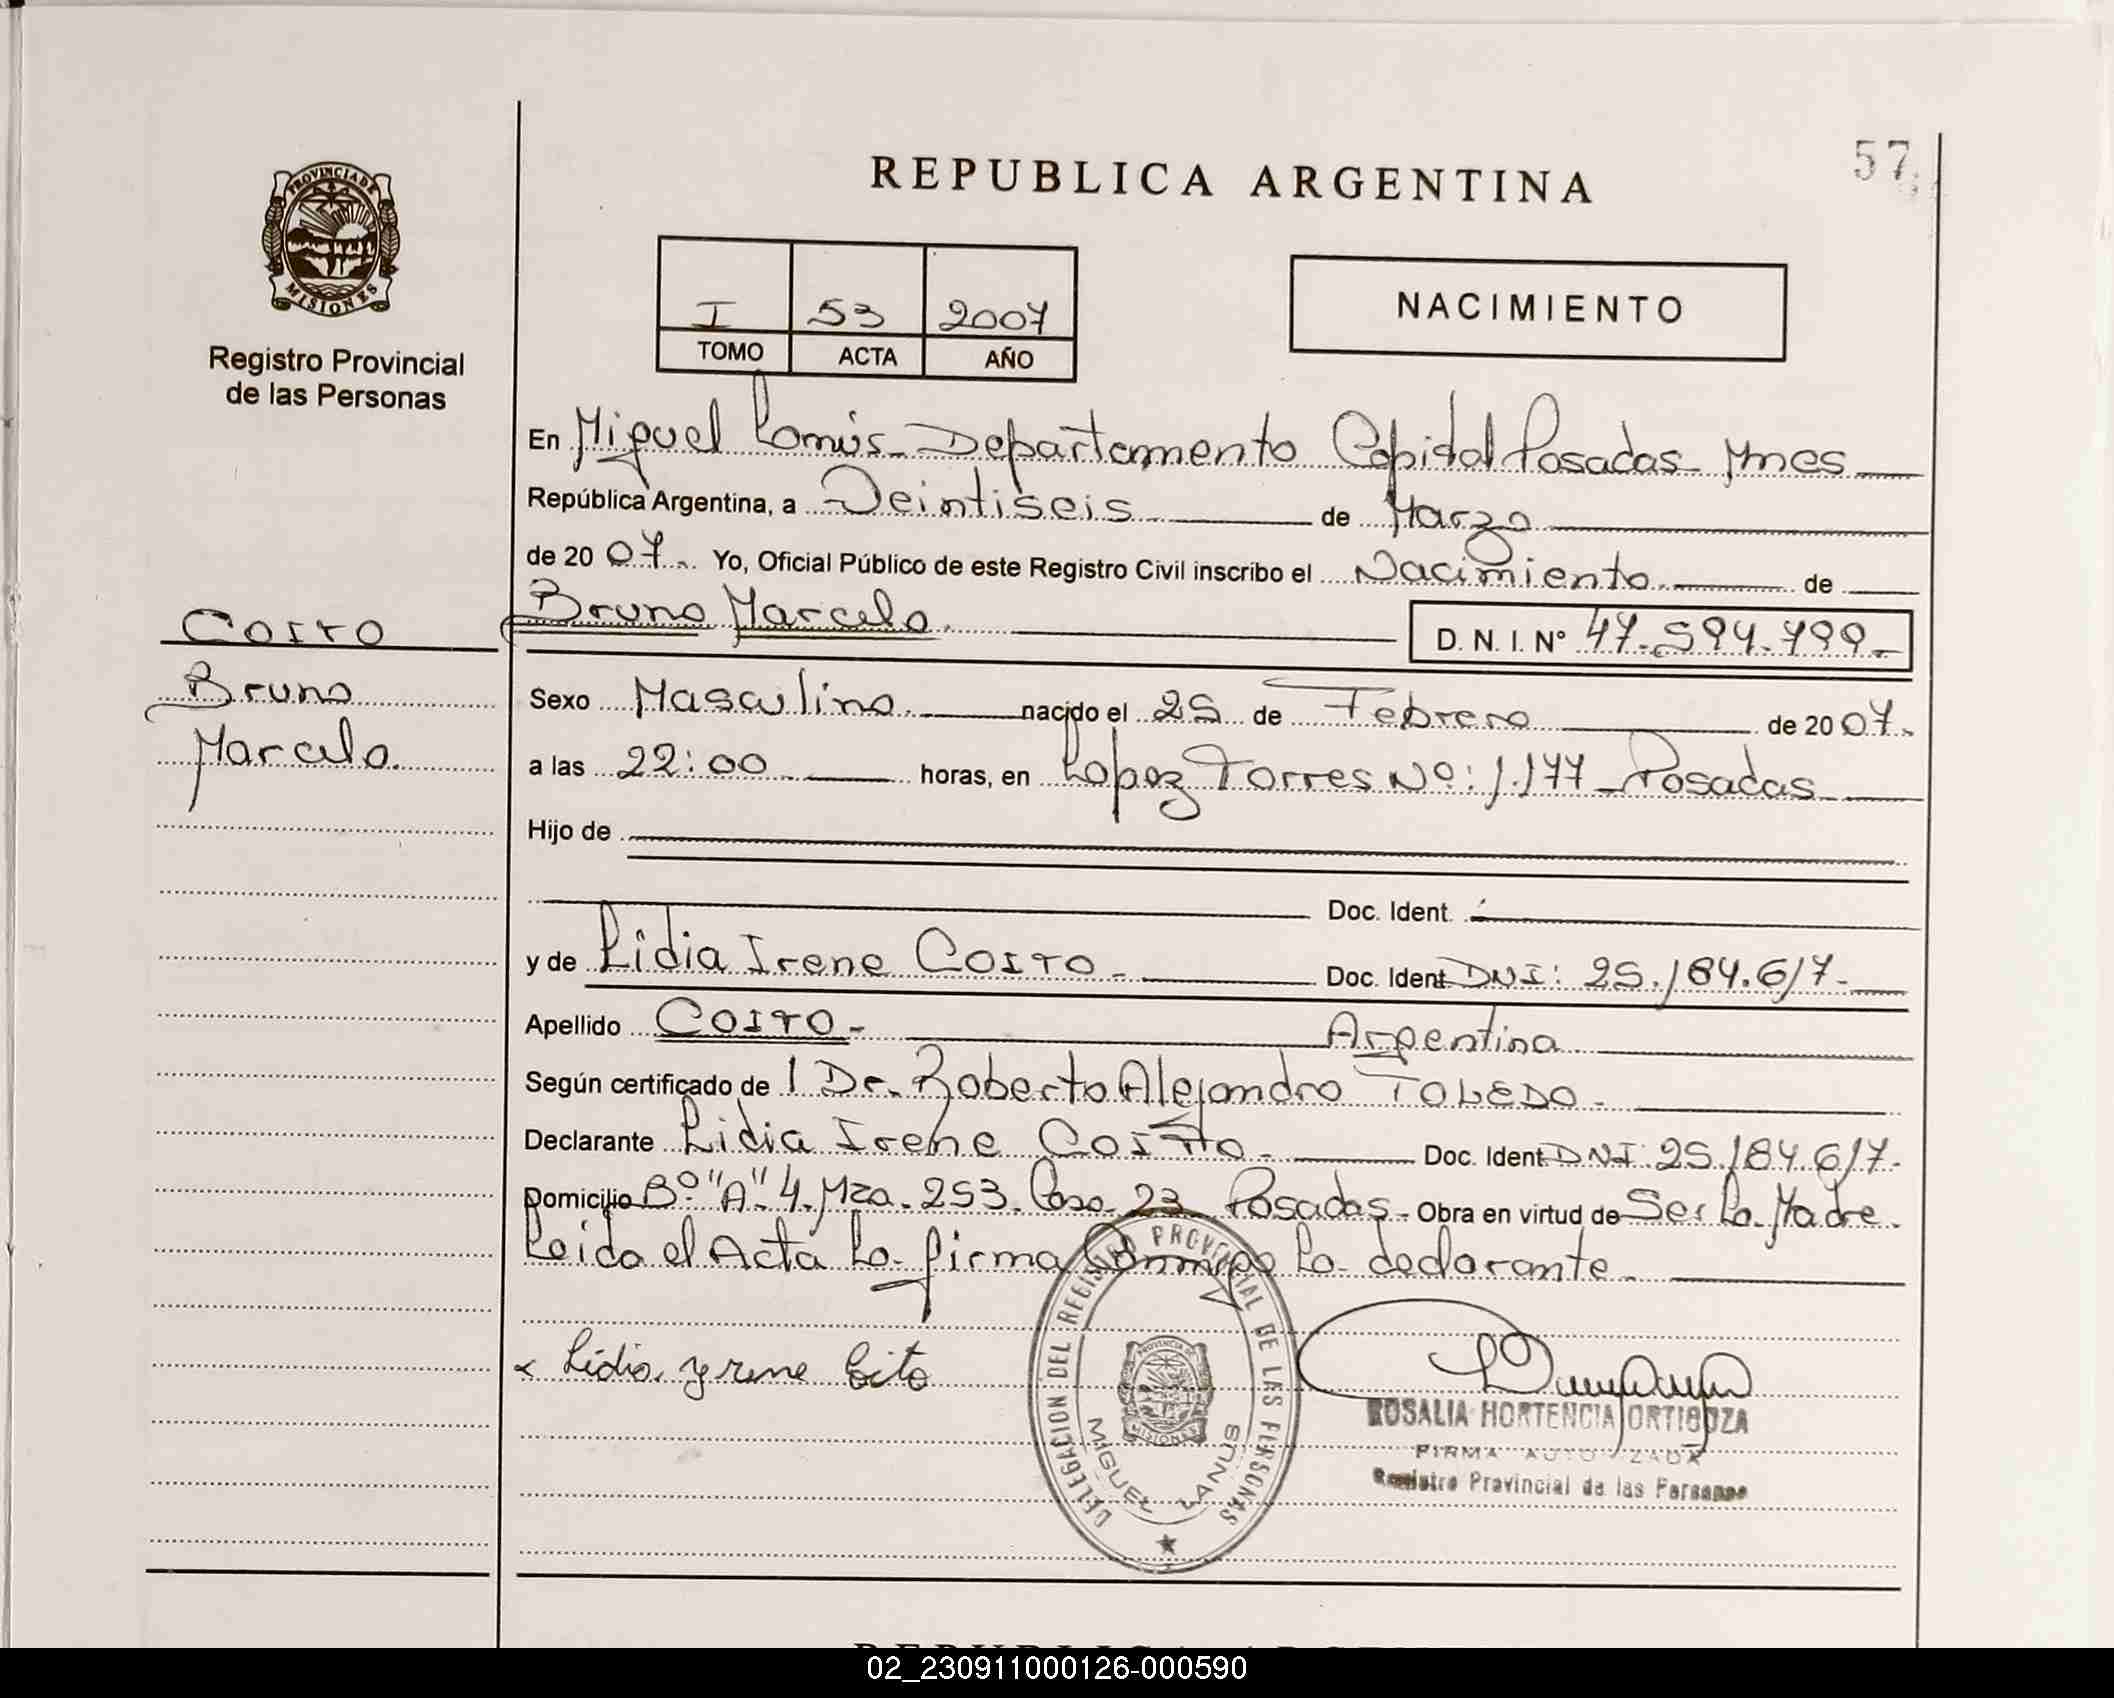 57
REPUBLICA ARGENTINA
PROVINCIA DE
MISIONES
Registro Provincial
de las Personas
I 53 2007
TOMO ACTA AÑO
NACIMIENTO
En Miguel Lanús - Departamento Capital Posadas Mnes
República Argentina, a Veintiseis de Marzo
de 2007. Yo, Oficial Público de este Registro Civil inscribo el Nacimiento de
COITO
Bruno Marcelo. D. N. I. Nº 47.594.799.-
Bruno
Marcelo.
Sexo Masculino. nacido el 25 de Febrero de 2007.
a las 22:00 horas, en Lopez Torres Nº: 1.177 - Posadas
Hijo de
Doc. Ident.
y de Lidia Irene COITO - Doc. Ident DNI: 25.184.617.-
Apellido COITO - Argentina
Según certificado de l Dr. Roberto Alejandro TOLEDO -
Declarante Lidia Irene COITO - Doc. Ident DNI: 25.184.617.
Domicilio Bº "A" 4. Mza. 253. Casa 23 Posadas - Obra en virtud de Ser La Madre.
Leida el Acta La firma Conmigo La declarante.
x Lidia Yrene Coito
DELEGACION DEL REGISTRO PROVINCIAL DE LAS PERSONAS
PROVINCIA DE
MISIONES
MIGUEL LANUS
ROSALIA HORTENCIA ORTIGOZA
FIRMA AUTORIZADA
Registro Provincial de las Personas
02_230911000126-000590